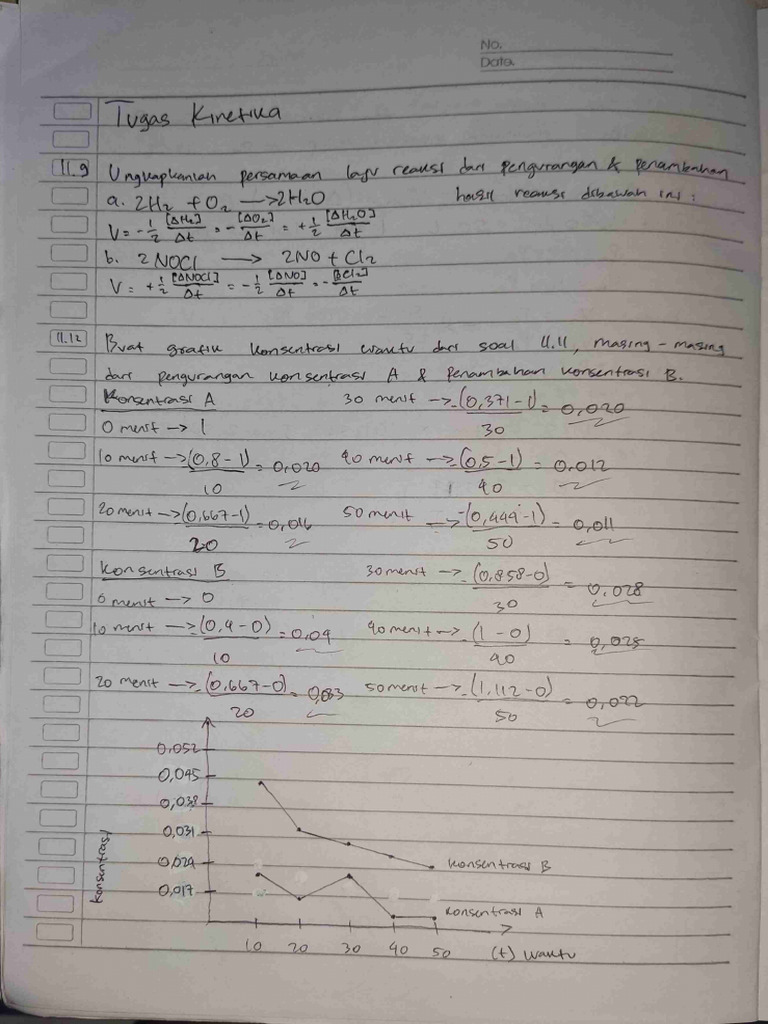 No.
Data
Tugas Kinetika
11.9 Ungkapkanlah persamaan laju reaksi dari pengurangan & penambahan
hasil reaksi dibawah ini :
a. 2H₂ + O₂ → 2H₂O
V = -1/2 [ΔH₂]/Δt = - [ΔO₂]/Δt = +1/2 [ΔH₂O]/Δt
b. 2NOCl → 2NO + Cl₂
V = +1/2 [ΔNOCl]/Δt = -1/2 [ΔNO]/Δt = - [ΔCl₂]/Δt
11.12 Buat grafik konsentrasi waktu dari soal 11.11, masing-masing
dari pengurangan konsentrasi A & penambahan konsentrasi B.
Konsentrasi A
0 menit → 1
10 menit → -(0,8-1)/10 = 0,020
20 menit → -(0,667-1)/20 = 0,016
30 menit → -(0,371-1)/30 = 0,020
40 menit → -(0,5-1)/40 = 0,012
50 menit → -(0,444-1)/50 = 0,011
Konsentrasi B
0 menit → 0
10 menit → -(0,4-0)/10 = 0,04
20 menit → -(0,667-0)/20 = 0,033
30 menit → -(0,858-0)/30 = 0,028
40 menit → -(1-0)/40 = 0,025
50 menit → -(1,112-0)/50 = 0,022
konsentrasi
0,052
0,045
0,038
0,031
0,024
0,017
Konsentrasi B
Konsentrasi A
10 20 30 40 50 (t) waktu